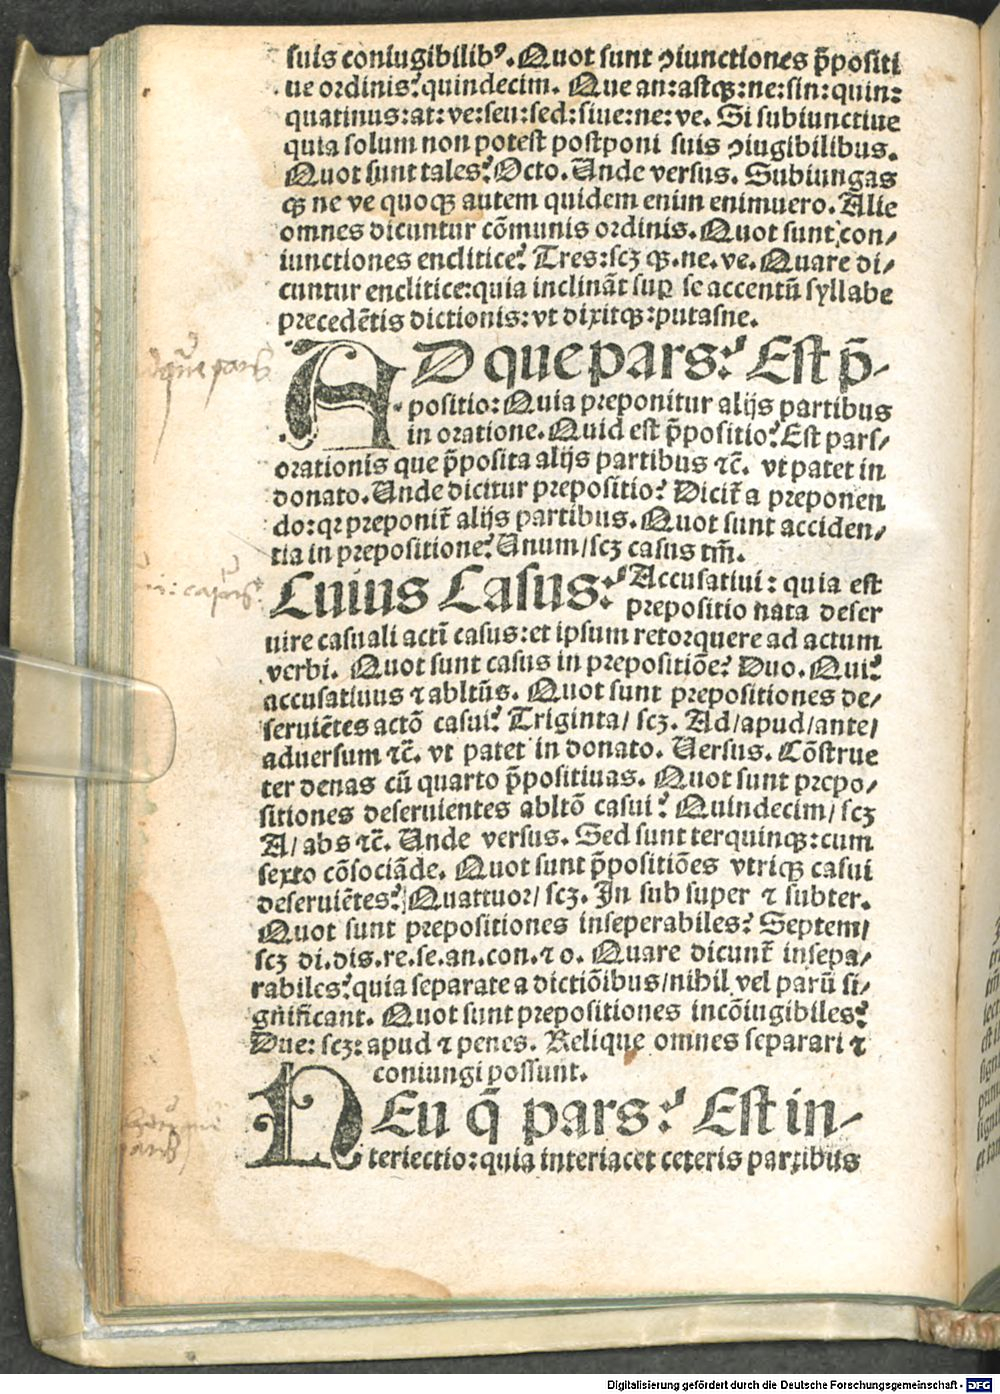 suis coniugibilibꝰ. Quot sunt ↄiunctiones p̄positi
ue ordinis? quindecim. Que an: astqꝫ: ne: sin: quin:
quatinus: at: ve: seu: sed: siue: ne: ve. Si subiunctiue
quia solum non potest postponi suis ↄiugibilibus.
Quot sunt tales? Octo. Unde versus. Subiungas
qꝫ ne ve quoqꝫ autem quidem enim enimuero. Alie
omnes dicuntur cōmunis ordinis. Quot sunt con/
iunctiones enclitice? Tres: scꝫ qꝫ. ne. ve. Quare di/
cuntur enclitice: quia inclināt suꝑ se accentū syllabe
precedētis dictionis: vt dixitqꝫ: putasne.
AD que pars? Est p̄-
positio: Quia preponitur alijs partibus
in oratione. Quid est p̄positio? Est pars/
orationis que p̄posita alijs partibus ⁊c̄. vt patet in
donato. Unde dicitur prepositio? Dicit̄ a preponen
do: qꝛ preponit̄ alijs partibus. Quot sunt acciden/
tia in prepositione? Unum/ scꝫ casus tm̄.
Cuius Casus? Accusatiui: quia est
prepositio nata deser
uire casuali actī casus: et ipsum retorquere ad actum
verbi. Quot sunt casus in prepositiōe? Duo. Qui?
accusatiuus ⁊ abltūs. Quot sunt prepositiones de/
seruiētes actō casui? Triginta/ scꝫ. Ad/ apud/ ante/
aduersum ⁊c̄. vt patet in donato. Uersus. Cōstrue
ter denas cū quarto p̄positiuas. Quot sunt prepo/
sitiones deseruientes abltō casui? Quindecim/ scꝫ
A/ abs ⁊c̄. Unde versus. Sed sunt terquinqꝫ: cum
sexto cōsociāde. Quot sunt p̄positiōes vtriqꝫ casui
deseruiētes? Quattuor/ scꝫ. In sub super ⁊ subter.
Quot sunt prepositiones inseperabiles? Septem/
scꝫ di. dis. re. se. an. con. ⁊ o. Quare dicunt̄ insepa/
rabiles? quia separate a dictiōibus/ nihil vel parū si/
gnificant. Quot sunt prepositiones incōiugibiles?
Due: scꝫ: apud ⁊ penes. Relique omnes separari ⁊
coniungi possunt.
HEu q̄ pars? Est in-
teriectio: quia interiacet ceteris partibus
dque pars
casus
pars
Digitalisierung gefördert durch die Deutsche Forschungsgemeinschaft - DFG